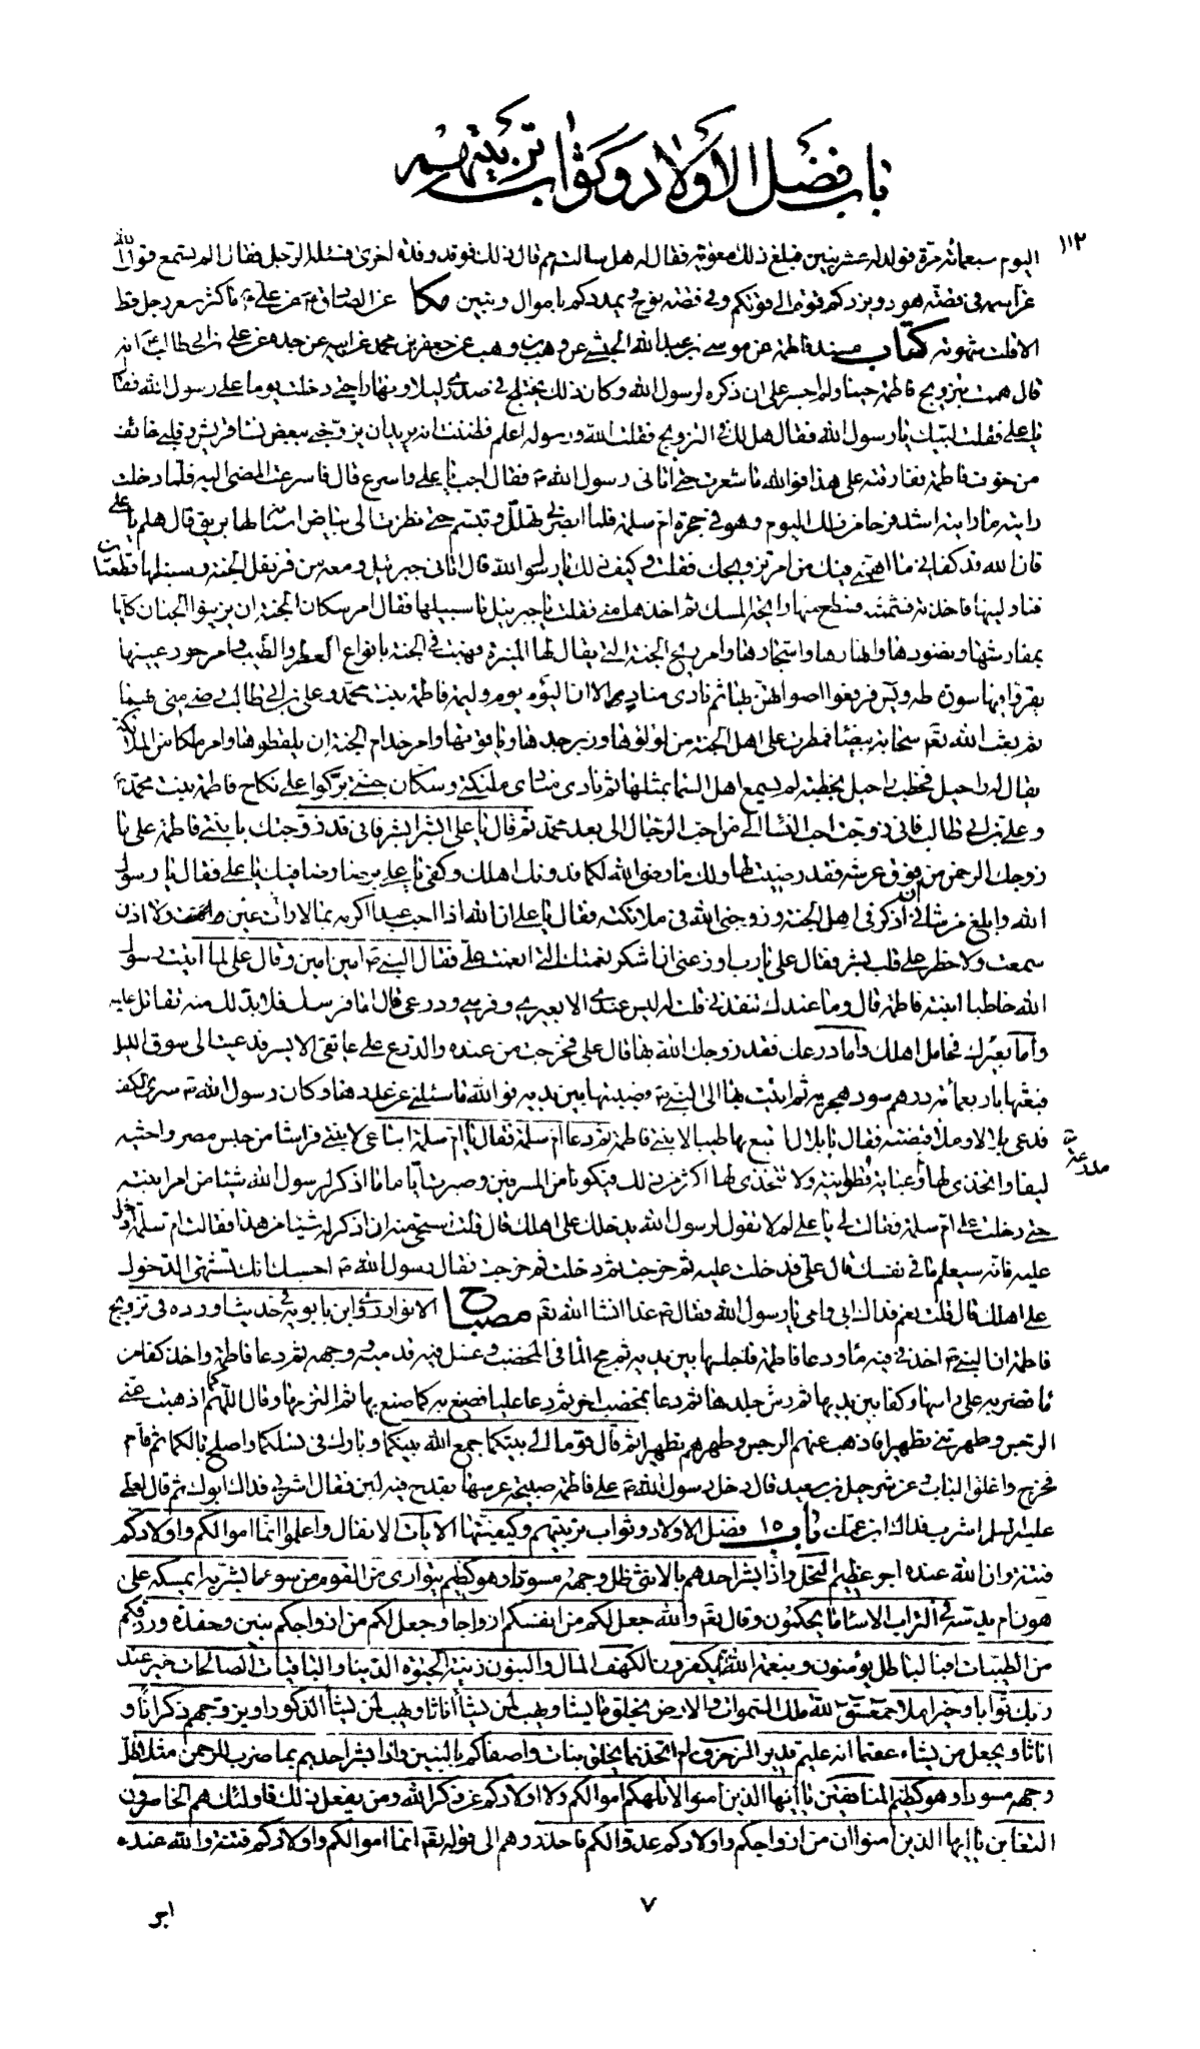 باب فضل الأولاد وثواب تربيتهم
١١٢
اليوم سبعمائة مرة فولد له عشر بنين فبلغ ذلك معوية فقال له هل سالته مم قال ذلك فوفد وفدة اخرى فسئله الرجل فقال الم تستمع قول الله
عز اسمه في قصة هود ويزدكم قوة الى قوتكم وفي قصة نوح ويمددكم باموال وبنين مكا عن الصادق ع عن علي ع ما كثر شعر رجل قط
الا قلت شهوته كتاب مسند فاطمة عن موسى بن عبد الله الجشمي عن وهب بن وهب عن جعفر بن محمد عن ابيه عن جده عن علي بن ابي طالب ع انه
قال هممت بتزويج فاطمة حينا ولم اجسر على ان اذكره لرسول الله وكان ذلك يختلج في صدري ليلا ونهارا حتى دخلت يوما على رسول الله فقال
يا علي فقلت لبيك يا رسول الله فقال هل لك في التزويج فقلت الله ورسوله اعلم فظننت انه يريد ان يزوجني ببعض نساء قريش وقلبي خائف
من فوت فاطمة ففارقته على هذا فوالله ما شعرت حتى اتاني رسول الله ص فقال اجب يا علي واسرع قال فاسرعت المضي اليه فلما دخلت
رايته ما رايته اشد فرحا من ذلك اليوم وهو في حجرة ام سلمة فلما ابصرني تهلل وتبسم حتى نظرت الى بياض اسنانه لها بريق قال هلم يا علي
فان الله قد كفاني ما اهمني فيك من امر تزويجك فقلت وكيف ذلك يا رسول الله قال اتاني جبرئيل ومعه من قرنفل الجنة وسنبلها قطعتان
فناولنيها فاخذته فشممته فسطع منها رايحة المسك ثم اخذها مني فقلت يا جبرئيل ما سبيلها فقال امر سكان الجنة ان يزينوا الجنان كلها
بمفارشها ونضودها وانهارها واشجارها وامر ريح الجنة التي يقال لها المنيرة فهبت في الجنة بانواع العطر والطيب وامر حور عينها
يقرؤا فيها سورة طه ويس فرفعوا اصواتهن بها ثم نادى مناد الا ان اليوم يوم وليمة فاطمة بنت محمد وعلي بن ابي طالب رضي مني بهما
ثم بعث الله تعم سحابة بيضا فمطرت على اهل الجنة من لؤلؤها وزبرجدها وياقوتها وامر خدام الجنة ان يلقطوها وامر ملكا من الملائكة
يقال له راحيل فخطب راحيل بخطبة لم يسمع اهل السماء بمثلها ثم نادى مناد يا ملئكتي وسكان جنتي بركوا على نكاح فاطمة بنت محمد ص
وعلي بن ابي طالب فاني زوجت احب النساء الي من احب الرجال الي بعد محمد ثم قال يا علي ابشر ابشر فاني قد زوجتك بابنتي فاطمة على ما
زوجك الرحمن من فوق عرشه فقد رضيت لها ولك ما رضي الله لكما فدونك اهلك وكفى يا علي برضاي رضا فيك يا علي فقال يا رسول
الله وابلغ من شاني ان اذكر في اهل الجنة وزوجني الله في ملائكته فقال يا علي ان الله اذا احب عبدا اكرمه بما لا رات عين ولا اذن
سمعت ولا خطر على قلب بشر فقال علي يا رب اوزعني ان اشكر نعمتك التي انعمت علي فقال النبي ص امين امين وقال علي لما اتيت رسول
الله خاطبا ابنته فاطمة قال وما عندك تنقدني قلت له ليس عندي الا بعيري وفرسي ودرعي قال اما فرسك فلا بد لك منه تقاتل عليه
واما بعيرك فحامل اهلك واما درعك فقد زوجك الله بها قال علي فخرجت من عنده والدرع على عاتقي الايسر فدعيت الى سوق الليل
فبعتها باربعمائة درهم سود هجرية ثم اتيت بها الى النبي ص فصببتها بين يديه فوالله ما سئلني عن عددها وكان رسول الله ص سري الكف
فدعى بلالا وملأ قبضته فقال يا بلال ابتع بها طيبا لابنتي فاطمة ثم دعا ام سلمة فقال يا ام سلمة ابتاعي لابنتي فراشا من حلس مصر واحشيه
ليفا واتخذي لها مدرعة وعباية قطوانية ولا تتخذي لها اكثر من ذلك فيكونا من المسرفين وصبرت اياما ما اذكر لرسول الله شيئا من امر ابنته
حتى دخلت على ام سلمة فقالت لي يا علي لم لا تقول لرسول الله يدخلك على اهلك قال قلت استحي منه ان اذكر له شيئا من هذا فقالت ام سلمة ادخل
عليه فانه سيعلم ما في نفسك قال علي فدخلت عليه ثم خرجت ثم دخلت ثم خرجت فقال رسول الله ص احسبك انك تشتهي الدخول
على اهلك قال قلت نعم فداك ابي وامي يا رسول الله فقال ص غدا انشا الله تعم مصباح الانوار روى ابن بابويه في حديث اورده في تزويج
فاطمة ان النبي ص اخذ في فيه ماء ودعا فاطمة فاجلسها بين يديه ثم مج الماء في المخضب وغسل فيه قدميه ووجهه ثم دعا فاطمة واخذ كفا من
ماء فضربه على راسها وكفا بين يديها ثم رش جلدها ثم دعا بمخضب اخر ثم دعا عليا فصنع به كما صنع بها ثم التزمهما وقال اللهم كما اذهبت عني
الرجس وطهرتني تطهيرا فاذهب عنهم الرجس وطهرهم تطهيرا ثم قال قوما الى بيتكما جمع الله بينكما وبارك في نسلكما واصلح بالكما ثم قام
فخرج واغلق الباب وعن شرحبيل بن سعيد قال دخل رسول الله ص على فاطمة صبيحة عرسها بقدح فيه لبن فقال اشربي فداك ابوك ثم قال لعلي
عليه السلم اشرب فداك ابن عمك باب ١٥ فضل الاولاد وثواب تربيتهم وكيفيتها الايات الانفال واعلموا انما اموالكم واولادكم
فتنة وان الله عنده اجر عظيم النحل واذا بشر احدهم بالانثى ظل وجهه مسودا وهو كظيم يتوارى من القوم من سوء ما بشر به ايمسكه على
هون ام يدسه في التراب الا ساء ما يحكمون وقال تعم والله جعل لكم من انفسكم ازواجا وجعل لكم من ازواجكم بنين وحفدة ورزقكم
من الطيبات افبالباطل يؤمنون وبنعمة الله هم يكفرون الكهف المال والبنون زينة الحيوة الدنيا والباقيات الصالحات خير عند
ربك ثوابا وخير املا حمعسق لله ملك السموات والارض يخلق ما يشاء يهب لمن يشاء اناثا ويهب لمن يشاء الذكور او يزوجهم ذكرانا و
اناثا ويجعل من يشاء عقيما انه عليم قدير الزخرف ام اتخذ مما يخلق بنات واصفاكم بالبنين واذا بشر احدهم بما ضرب للرحمن مثلا ظل
وجهه مسودا وهو كظيم المنافقين يا ايها الذين امنوا لا تلهكم اموالكم ولا اولادكم عن ذكر الله ومن يفعل ذلك فاولئك هم الخاسرون
التغابن يا ايها الذين امنوا ان من ازواجكم واولادكم عدوا لكم فاحذروهم الى قوله تعم انما اموالكم واولادكم فتنة والله عنده
٧
اجر